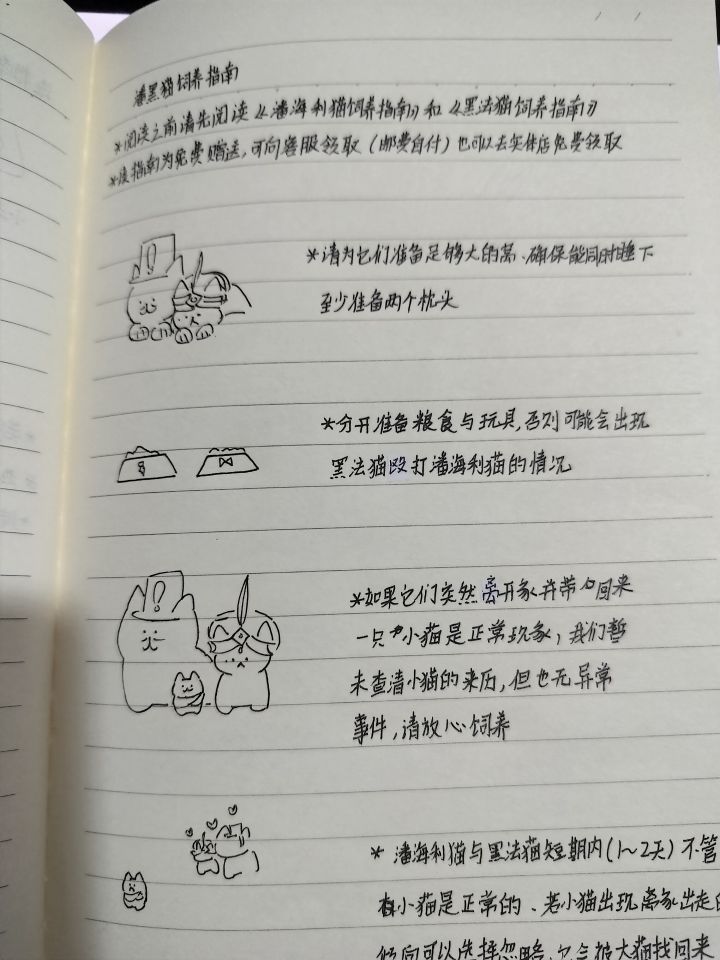 潘黑猫饲养指南
*阅读之前请先阅读《潘海利猫饲养指南》和《黑法猫饲养指南》
*该指南为免费赠送,可向客服领取(邮费自付)也可以去实体店免费领取
*请为它们准备足够大的窝、确保能同时睡下
至少准备两个枕头
*分开准备粮食与玩具,否则可能会出现
黑法猫殴打潘海利猫的情况
*如果它们突然离开家并带回来
一只小猫是正常现象,我们暂
未查清小猫的来历,但也无异常
事件,请放心饲养
* 潘海利猫与黑法猫短期内(1~2天)不管
小猫是正常的、若小猫出现离家出走的
倾向可以选择忽略,会被大猫找回来